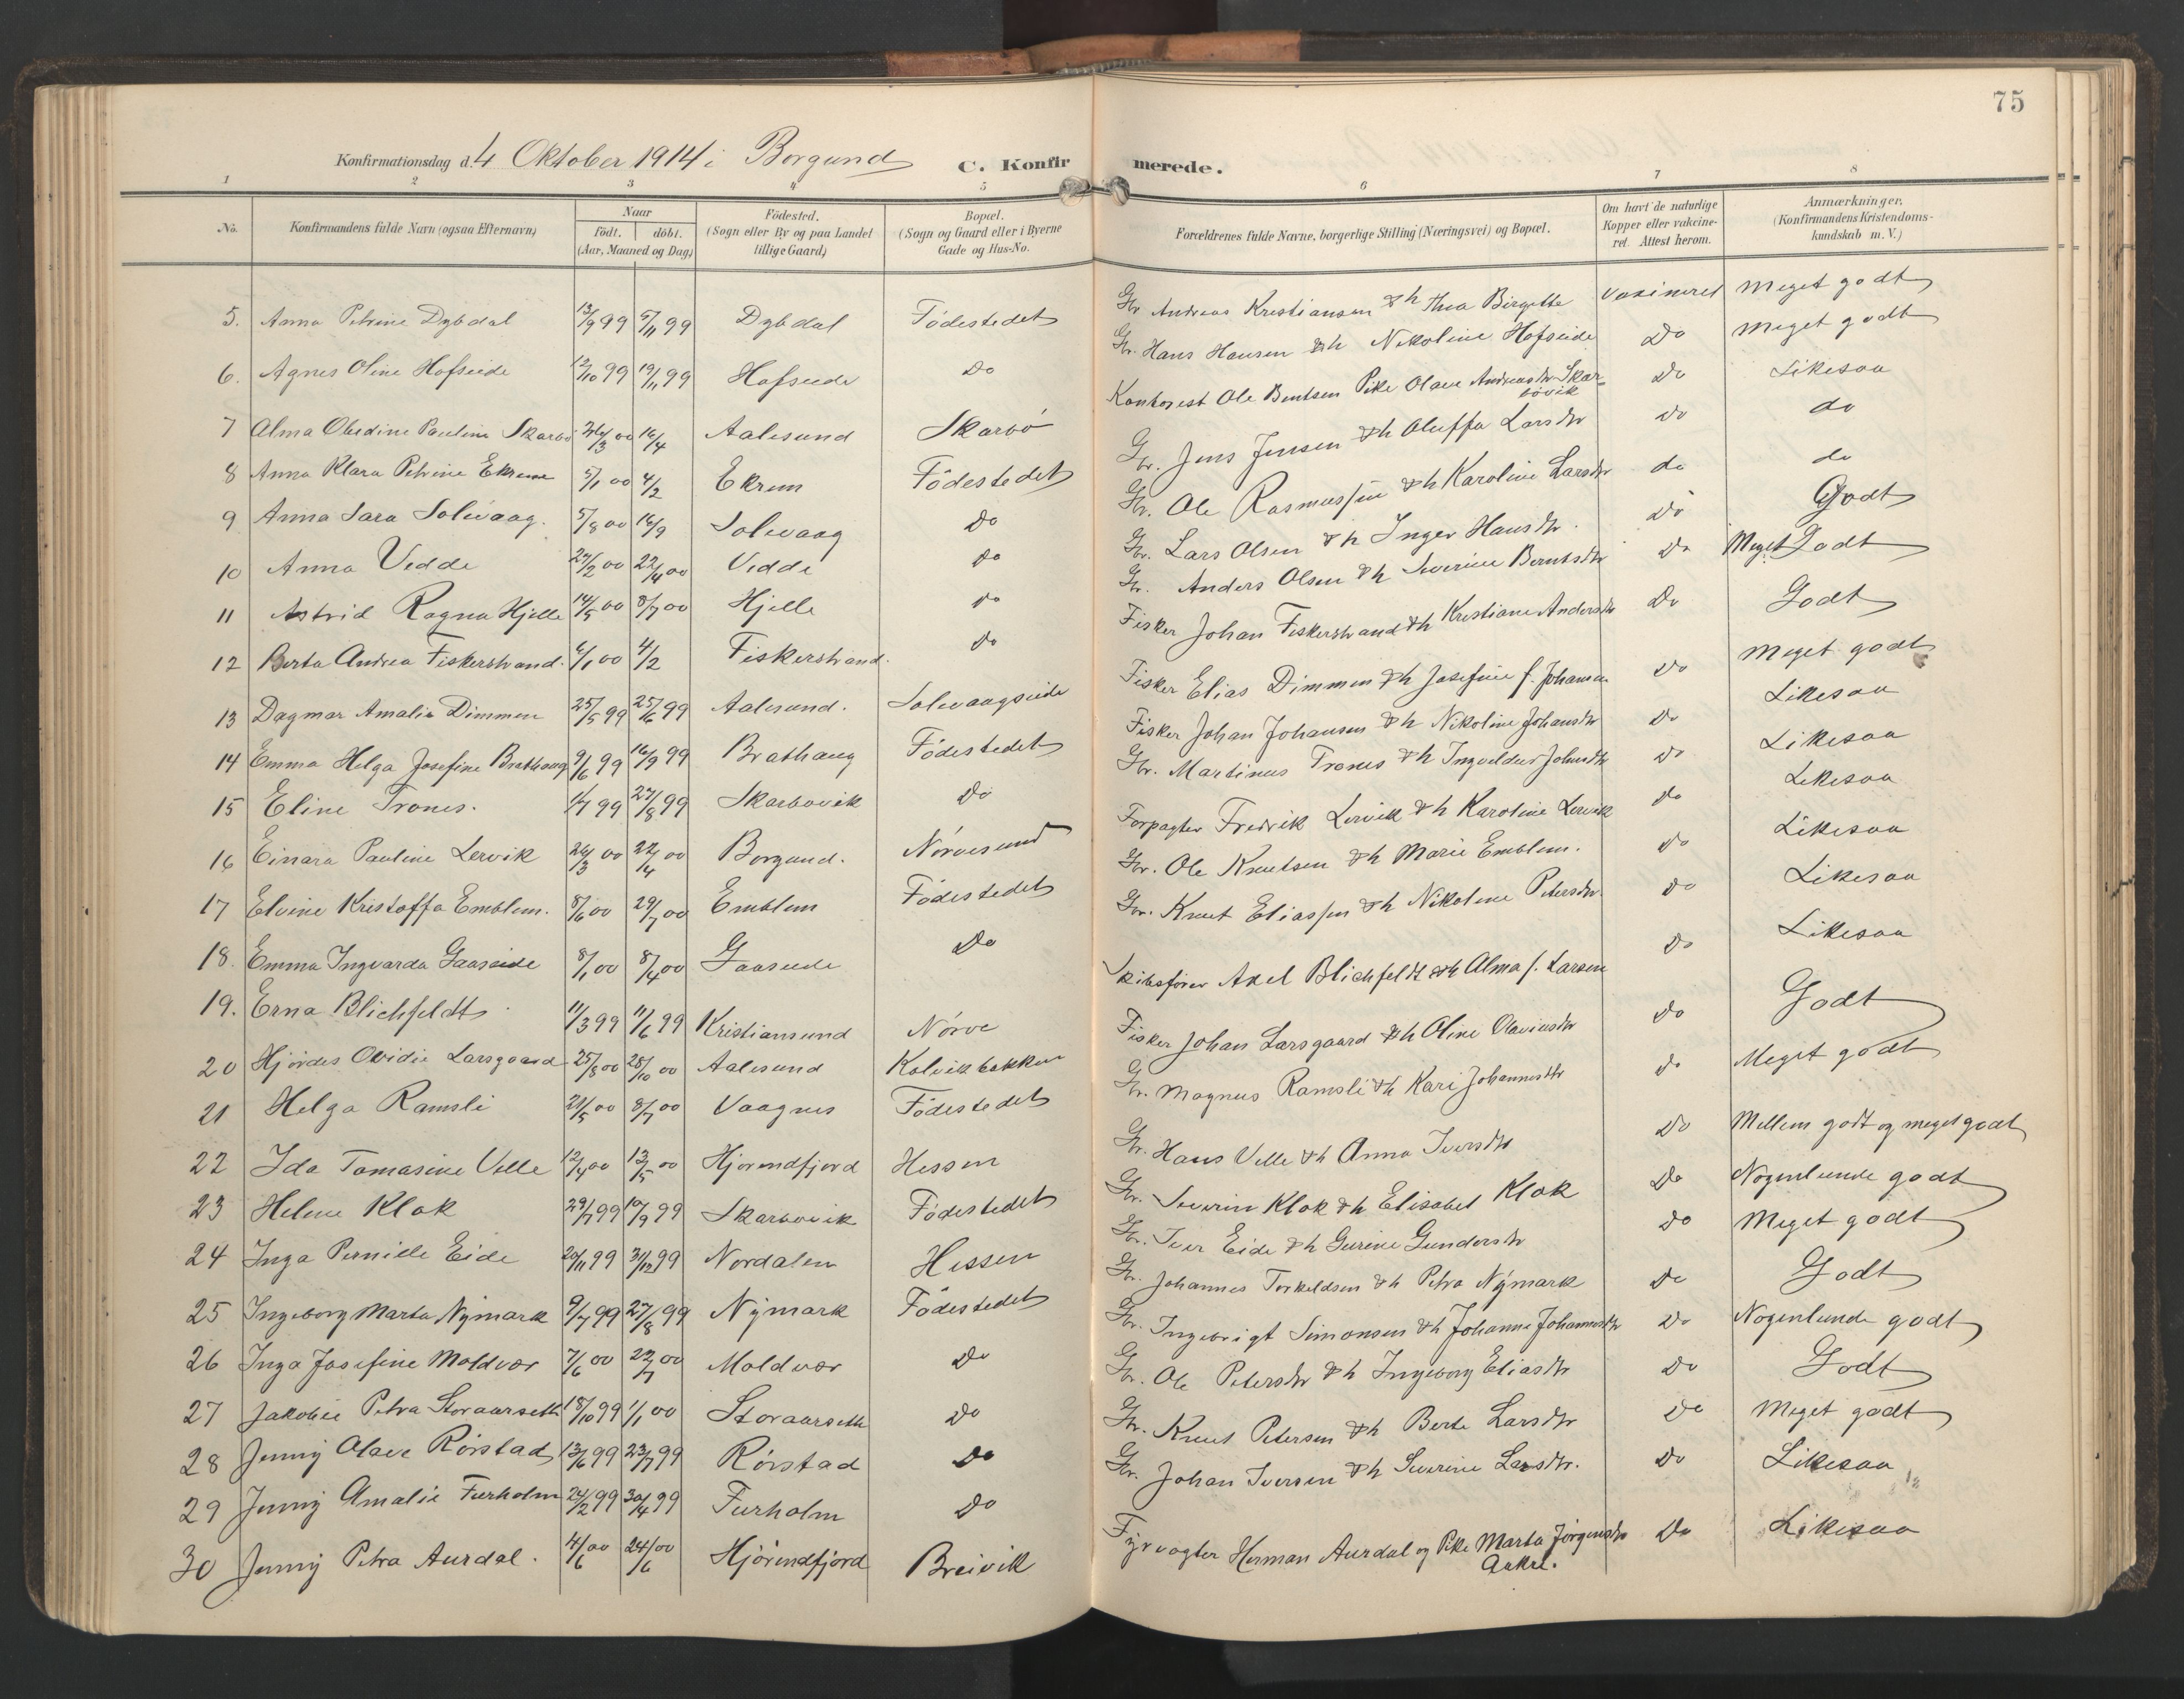 75
Konfirmationsdag d. 4 Oktober 1914 i Borgund C. Konfirmerede.
1 2 3 4 5 6 7 8
No. Konfirmandens fulde Navn (ogsaa Efternavn) Naar Födt. döbt. (Aar, Maaned og Dag) Födested. (Sogn eller By og paa Landet tillige Gaard) Bopæl. (Sogn og Gaard eller i Byerne Gade og Hus-No. Forældrenes fulde Navne, borgerlige Stilling (Næringsvei) og Bopæl. Om havt de naturlige Kopper eller vakcineret. Attest herom. Anmærkninger. (Konfirmandens Kristendomskundskab m. V.)
5. Anna Petrine Dybdal 13/9 99 5/11 99 Dybdal Födestedet Gbr Andreas Kristiansen & h Thea Birgitte Vaxineret Meget godt
6. Agnes Oline Hofseide 12/10 99 19/11 99 Hofseide Do Gbr. Hans Hansen & h Nikoline Hofseide Do Meget godt
7 Alma Obedine Pauline Skarbö 26/3 00 16/4 Aalesund Skarbö Kontorist Ole Bentsen Pike Olave Andreasdtr Skarbövik Do Likesaa
8 Anna Klara Petrine Ekrem 5/1 00 4/2 Ekrem Födestedet Gbr. Jens Jensen & h Oluffa Larsdtr Do do
9 Anna Sara Solevaag. 5/8 00 16/9 Solevaag Do Gbr. Ole Rasmussen & h Karoline Larsdtr do do
10 Anna Vedde 27/2 00 22/4 00 Vedde Do Gbr. Lars Olsen & h Inger Hansdtr. Do Godt
11 Astrid Ragna Hjelle 14/5 00 8/7 00 Hjelle Do Gbr. Anders Olsen & h Severine Berntsdtr Do Meget Godt
12 Berta Andrea Fiskerstrand. 6/1 00 4/2 Fiskerstrand. Do Fisker Johan Fiskerstrand & h Kristiane Andersdtr Do Godt
13 Dagmar Amalie Dimmen 25/5 99 25/6 99 Aalesund. Solevaagseide Fisker Elias Dimmen & h Josefine f. Johansen Do Meget godt
14 Emma Helga Josefine Brathaug 9/6 99 16/9 99 Brathaug Födestedet Fisker Johan Johansen & h Nikoline Johansdtr Do Likesaa
15 Eline Trones. 1/7 99 27/8 99 Skarbövik Do Gbr. Martinus Trones & h Ingvelder Johnsdtr Do Likesaa
16 Einara Pauline Lervik 26/3 00 22/4 00 Borgund. Nörvesund Forpagter Fredrik Lervik & h Karoline Lervik Do Likesaa
17 Elvine Kristoffa Emblem. 8/6 00 29/7 00 Emblem Födestedet Gbr. Ole Knutsen & h Marie Emblem. Do Likesaa
18. Emma Ingvarda Gaaseide 8/1 00 8/4 00 Gaaseide Do Gbr. Knut Eliassen & h Nikoline Petersdtr. Do Likesaa
19. Erna Blichfeldt 11/3 99 11/6 99 Kristiansund Nörve Skibsförer Axel Blichfeldt & h Alma f. Larsen Do Likesaa
20 Hjördes Ovidie Larsgaard 25/8 00 28/10 00 Aalesund Kolvikbakken Fisker Johan Larsgaard & h Oline Olavisdtr Do Godt
21 Helga Ramsli 21/5 00 8/7 00 Vaagnes Födestedet Gbr. Magnus Ramsli & h Kari Johannesdtr Do Meget godt
22 Ida Tomasine Velle 12/4 00 13/5 00 Hjörendfjord Hessen Gbr. Hans Velle & h Anna Iversdtr Do Mellem godt og meget godt
23 Helene Klok 29/7 99 10/9 99 Skarbövik Födestedet Gbr. Severin Klok & h Elisabet Klok Do Nogenlunde godt
24 Inga Pernille Eide 20/11 99 31/12 99 Nordalen Hessen Gbr. Iver Eide & h Gurine Gundersdtr Do Meget godt
25 Ingeborg Marta Nymark 9/7 99 27/8 99 Nymark Födestedet Gbr. Johannes Torkeldsen & h Petra Nymark Do Godt
26 Inga Josefine Moldvær 7/6 00 22/7 00 Moldvær Do Gbr. Ingebrigt Simonsen & h Johanne Johannesdtr Do Nogenlunde godt
27 Jakobie Petra Storaarseth 18/10 99 1/1 00 Storaarseth Do Gbr. Ole Petersdtr & h Ingeborg Eliasdtr Do Godt
28 Jenny Olave Rörstad 13/6 99 23/7 99 Rörstad Do Gbr. Knut Petersen & h Berte Larsdtr Do Meget godt
29 Jenny Amalie Furholm 24/2 99 30/4 99 Furholm Do Gbr. Johan Iversen & h Severine Larsdtr. Do Likesaa
30 Jenny Petra Aurdal. 4/6 00 24/6 00 Hjörendfjord Breivik Fyrvogter Herman Aurdal og Pike Marta Jörgensdtr Aakre. Do Likesaa